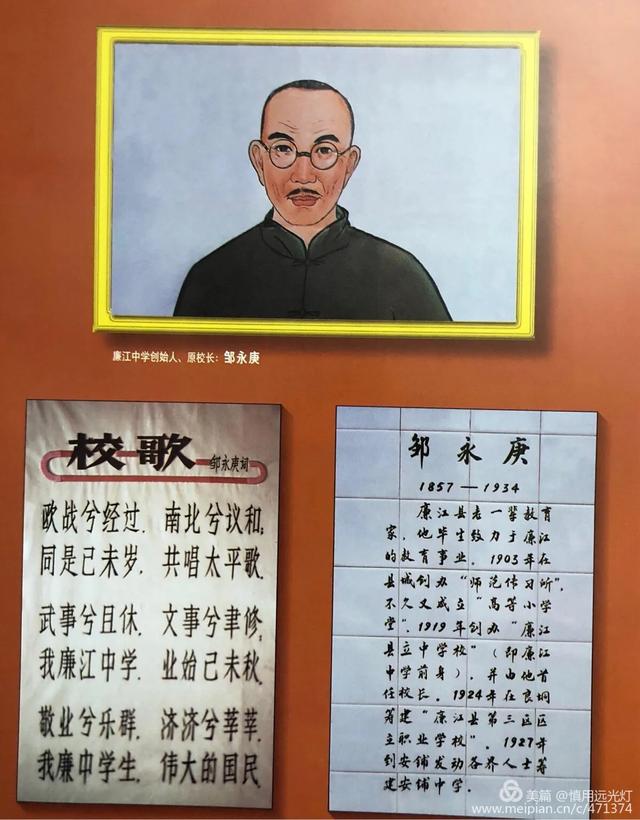 廉江中学创始人、原校长：邹永庚
校歌
邹永庚词
欧战兮经过，南北兮议和；
同是己未岁，共唱太平歌，
武事兮且休，文事兮聿修；
我廉江中学，业始己未秋，
敬业兮乐群，济济兮莘莘，
我廉中学生，伟大的国民
邹永庚
1857—1934
廉江县老一辈教育
家，他毕生致力于廉江
的教育事业。1903年在
县城创办“师范传习所”，
不久又成立“高等小学
堂”。1919年创办“廉江
县立中学校”（即廉江
中学前身），并由他首
任校长。1924年在良垌
筹建“廉江县第三区区
立职业学校”。1927年
到安铺发动各界人士筹
建安铺中学。
美篇 @慎用远光灯
www.meipian.cn/c/471374